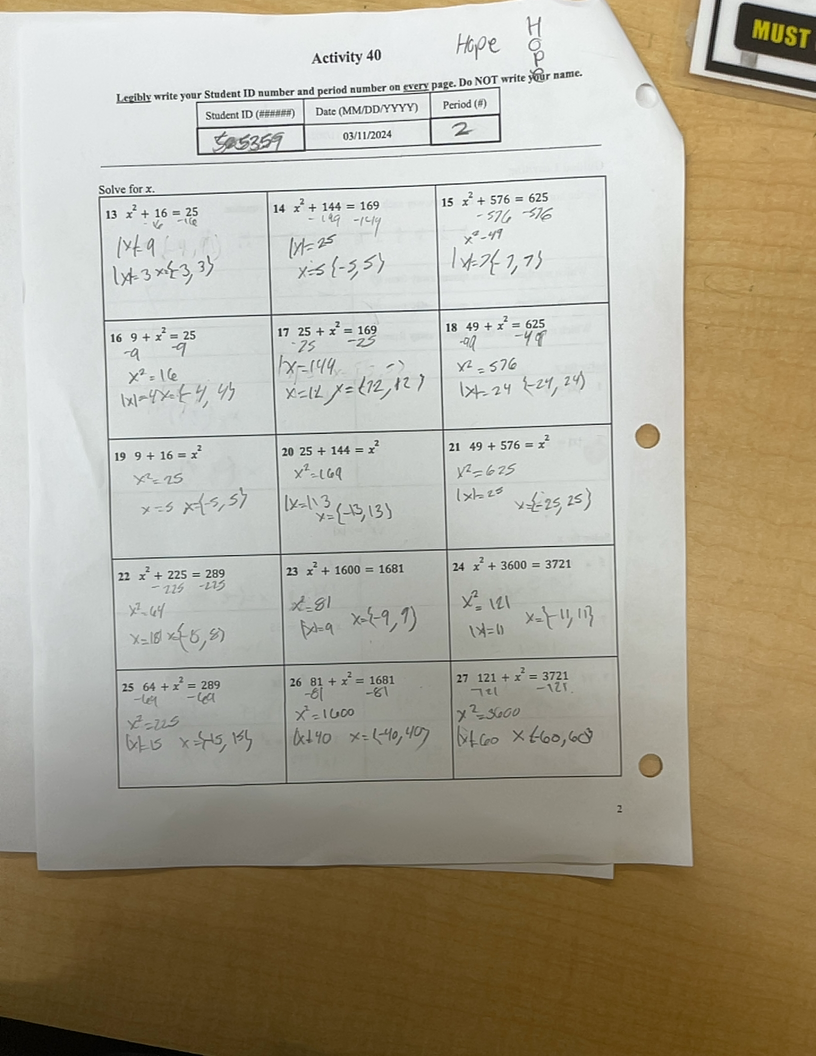 MUST
Hope
H
O
P
e
Activity 40
Legibly write your Student ID number and period number on every page. Do NOT write your name.
Student ID (######) Date (MM/DD/YYYY) Period (#)
505359 03/11/2024 2
Solve for x.
13 x² + 16 = 25
-16 -16
|x|=9
|x|=3 x={-3, 3}
14 x² + 144 = 169
-144 -144
|x|=25
x=5 {-5, 5}
15 x² + 576 = 625
-576 -576
x²=49
|x|=7{-7, 7}
16 9 + x² = 25
-9 -9
x²=16
|x|=4 x={-4, 4}
17 25 + x² = 169
-25 -25
|x=144
x=12 x={12, 12}
18 49 + x² = 625
-49 -49
x²=576
|x|=24 {-24, 24}
19 9 + 16 = x²
x²=25
x=5 x={-5, 5}
20 25 + 144 = x²
x²=169
|x=|13
x={-13, 13}
21 49 + 576 = x²
x²=625
|x|=25 x={-25, 25}
22 x² + 225 = 289
-225 -225
x²=64
x=|8| x={-8, 8}
23 x² + 1600 = 1681
x²=81
|x|=9 x={-9, 9}
24 x² + 3600 = 3721
x²=121
|x|=11 x={-11, 11}
25 64 + x² = 289
-64 -64
x²=225
|x|=15 x={-15, 15}
26 81 + x² = 1681
-81 -81
x²=1600
|x|=40 x={-40, 40}
27 121 + x² = 3721
-121 -121
x²=3600
|x|=60 x={-60, 60}
2